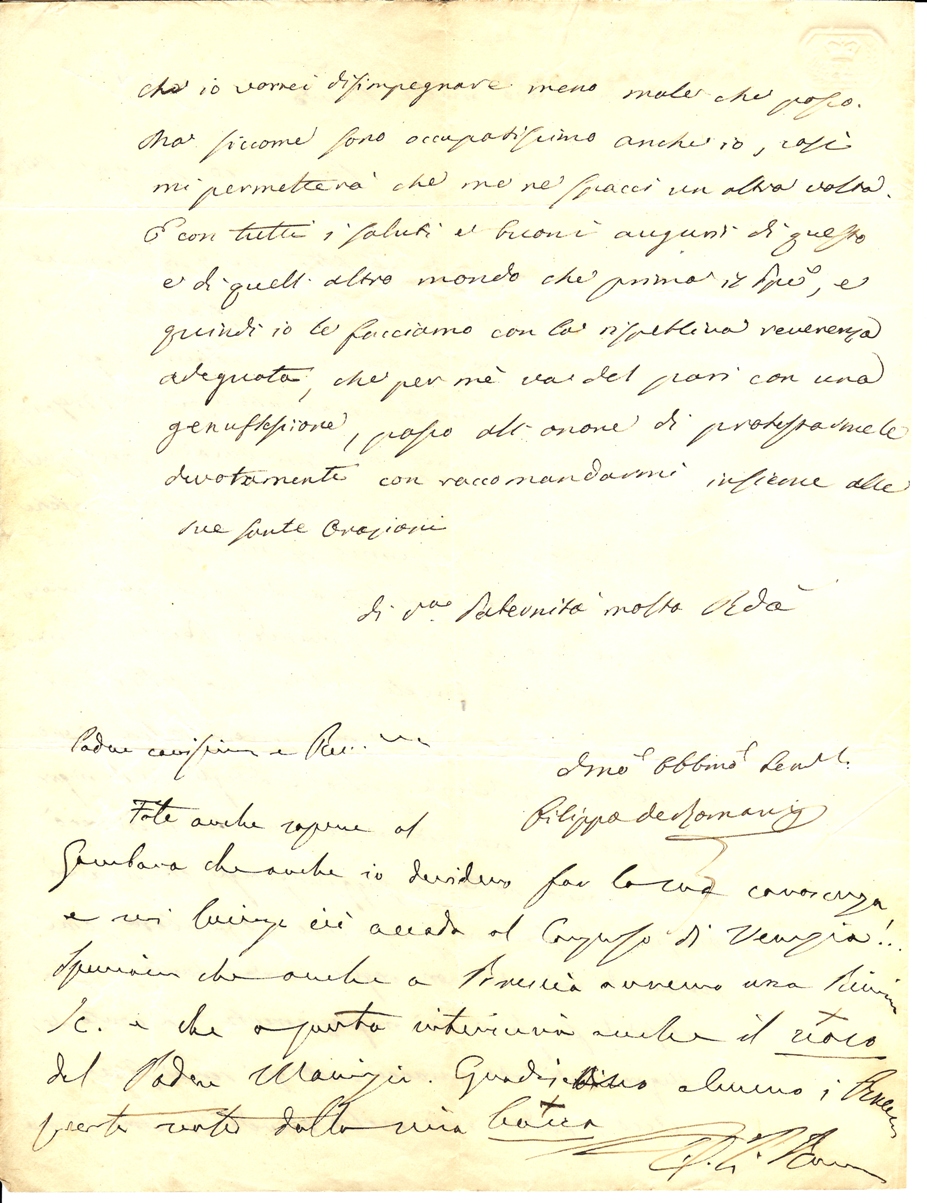 che io vorrei disimpegnare meno male che posso.
Ma siccome sono occupatissimo anche io, così
mi permetterà che me ne spacci un altra volta.
E con tutti i saluti e buoni augurj di questo
e di quell altro mondo che prima il, e
quindi io le facciamo con la rispettiva reverenza
adeguata, che per me va del pari con una
genuflessione, passo all onore di protestarmele
devotamente con raccomandarmi insieme alle
sue sante Orazioni
di Vra. Paternità molto Rdà
Padre carissimo e Rev.mo
Dmo Obbmo
Filippo de Romanis
Fate anche sapere al
Gambara che anche io desidero far la sua conoscenza
e mi lusingo ciò accada al Congresso di Venezia!..
che anche a Brescia avremo una
Sc. e che a questa interverrà anche il
del Padre Maurizio. almeno i
dalla mia